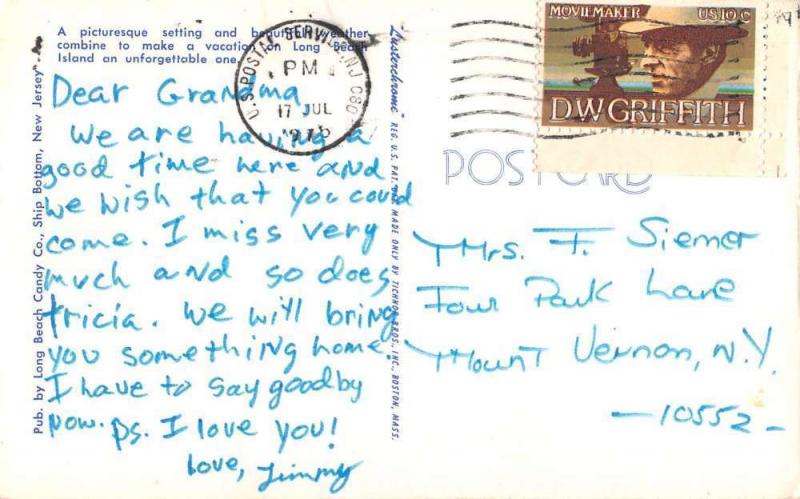 A picturesque setting and beautiful weather
combine to make a vacation on Long Beach
Island an unforgettable one.
Dear Grandma,
We are having a
good time here and
we wish that you could
come. I miss very
much and so does
tricia. We will bring
you something home.
I have to say goodby
now. Ps. I love you!
love, Jimmy
Pub. by Long Beach Candy Co., Ship Bottom, New Jersey
"Lusterchrome" REG. U.S. PAT. MADE ONLY BY TICHNOR BROS., INC., BOSTON, MASS.
U.S. POSTAL SERVICE, NJ 080
PM
17 JUL
MOVIEMAKER US 10c
DW GRIFFITH
POSTCARD
Mrs. F. Siemer
Four Park Lane
Mount Vernon, N.Y.
-10552-